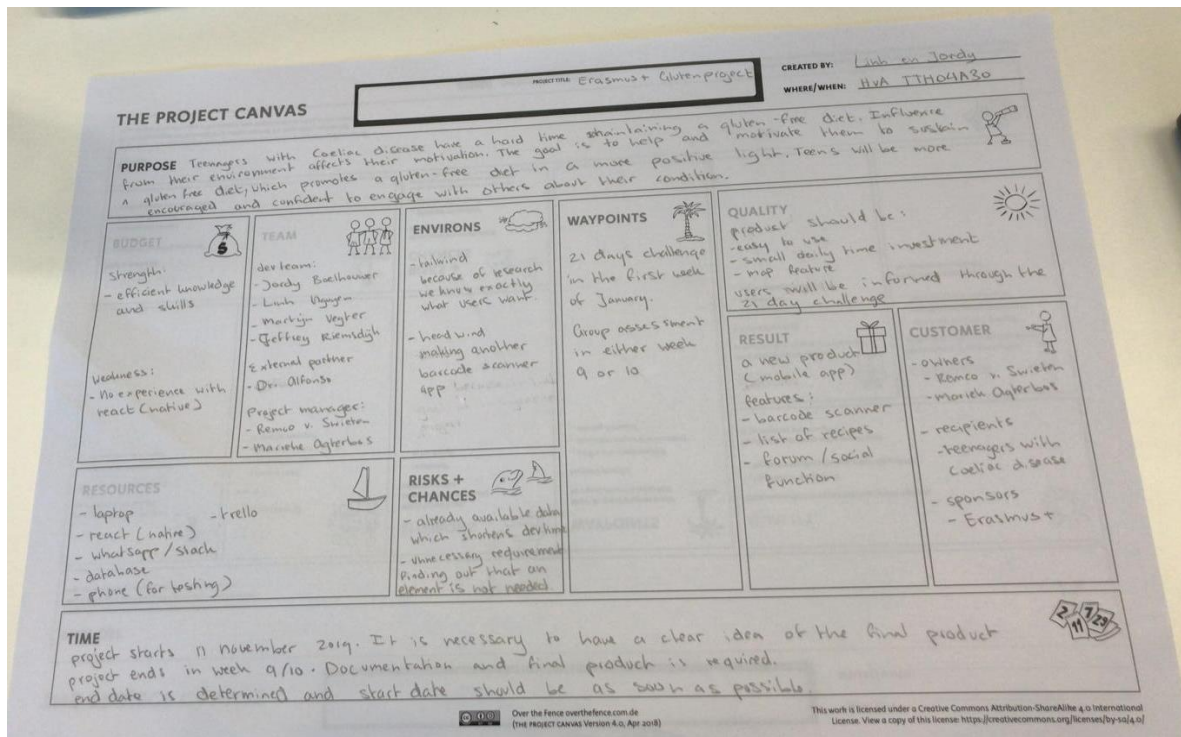 THE PROJECT CANVAS
PROJECT TITLE: Erasmus+ Glutenproject
CREATED BY: Linh en Jordy
WHERE/WHEN: HvA TTH04A30
PURPOSE Teenagers with Coeliac disease have a hard time maintaining a gluten-free diet. Influence
from their environment affects their motivation. The goal is to help and motivate them to sustain
a gluten free diet, which promotes a gluten-free diet in a more positive light. Teens will be more
encouraged and confident to engage with others about their condition.
BUDGET
strength:
- efficient knowledge
and skills
weakness:
- no experience with
react (native)
TEAM
dev team:
- Jordy Boelhouwer
- Linh Nguyen
- Martijn Vegter
- Jeffrey Riemsdijk
External partner
- Dr. Alfonso
Project manager:
- Remco v. Swieten
- Marieke Agterbos
ENVIRONS
- tailwind
because of research
we know exactly
what users want.
- head wind
making another
barcode scanner
app
WAYPOINTS
21 days challenge
in the first week
of January.
Group assessment
in either week
9 or 10
QUALITY
product should be:
- easy to use
- small daily time investment
- map feature
users will be informed through the
21 day challenge
RESULT
a new product
(mobile app)
features:
- barcode scanner
- list of recipes
- forum / social
function
CUSTOMER
- owners
- Remco v. Swieten
- Mariek Agterbos
- recipients
- teenagers with
Coeliac disease
- sponsors
- Erasmus+
RESOURCES
- laptop
- trello
- react (native)
- whatsapp / slack
- database
- phone (for testing)
RISKS +
CHANCES
- already available data
which shortens dev time
- unnecessary requirement
finding out that an
element is not needed.
TIME
project starts 11 november 2019. It is necessary to have a clear idea of the final product
project ends in week 9/10. Documentation and final product is required.
end date is determined and start date should be as soon as possible.
2 7 11 23
Over the Fence overthefence.com.de
(THE PROJECT CANVAS Version 4.0, Apr 2018)
This work is licensed under a Creative Commons Attribution-ShareAlike 4.0 International
License. View a copy of this license: https://creativecommons.org/licenses/by-sa/4.0/